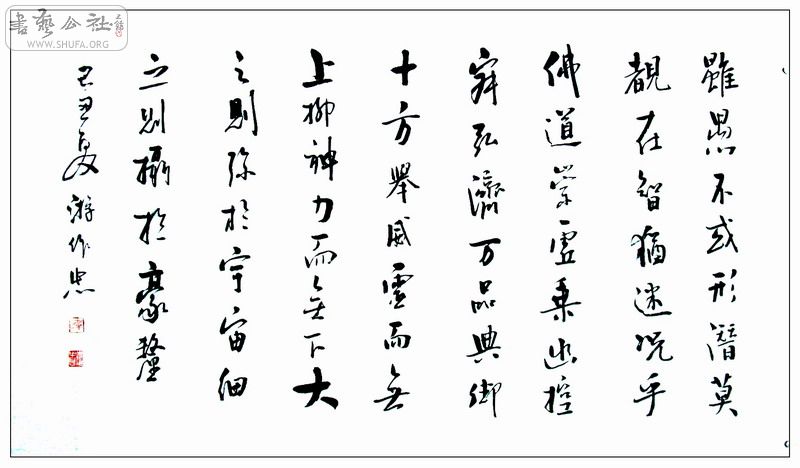 書藝公社
WWW.SHUFA.ORG
雖愚不或形潛莫
覩在智猶迷況乎
佛道崇虛乘幽控
寂弘濟万品典御
十方舉威靈而無
上抑神力而無下大
之則弥於宇宙細
之則攝於豪釐
己丑夏游作忠